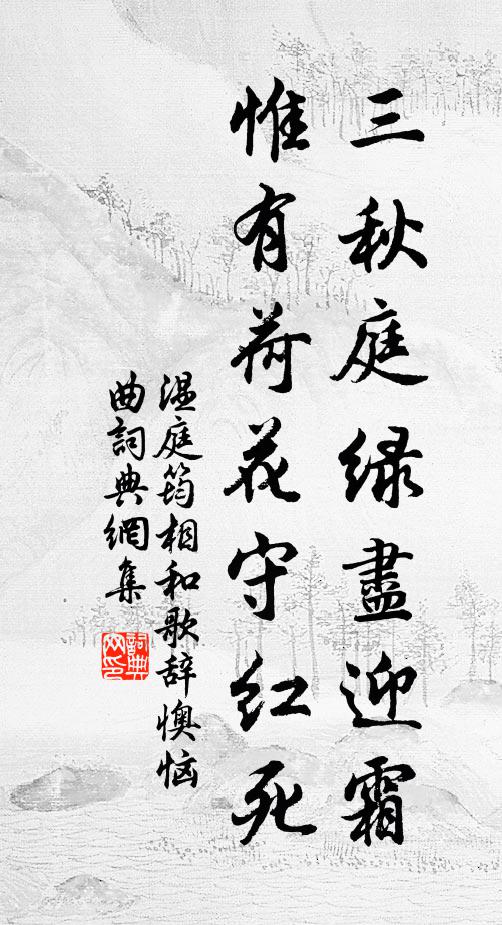 三秋庭绿盡迎霜
惟有荷花守红死
温庭筠相和歌辞懊恼
曲詞典網集
詞典
网印